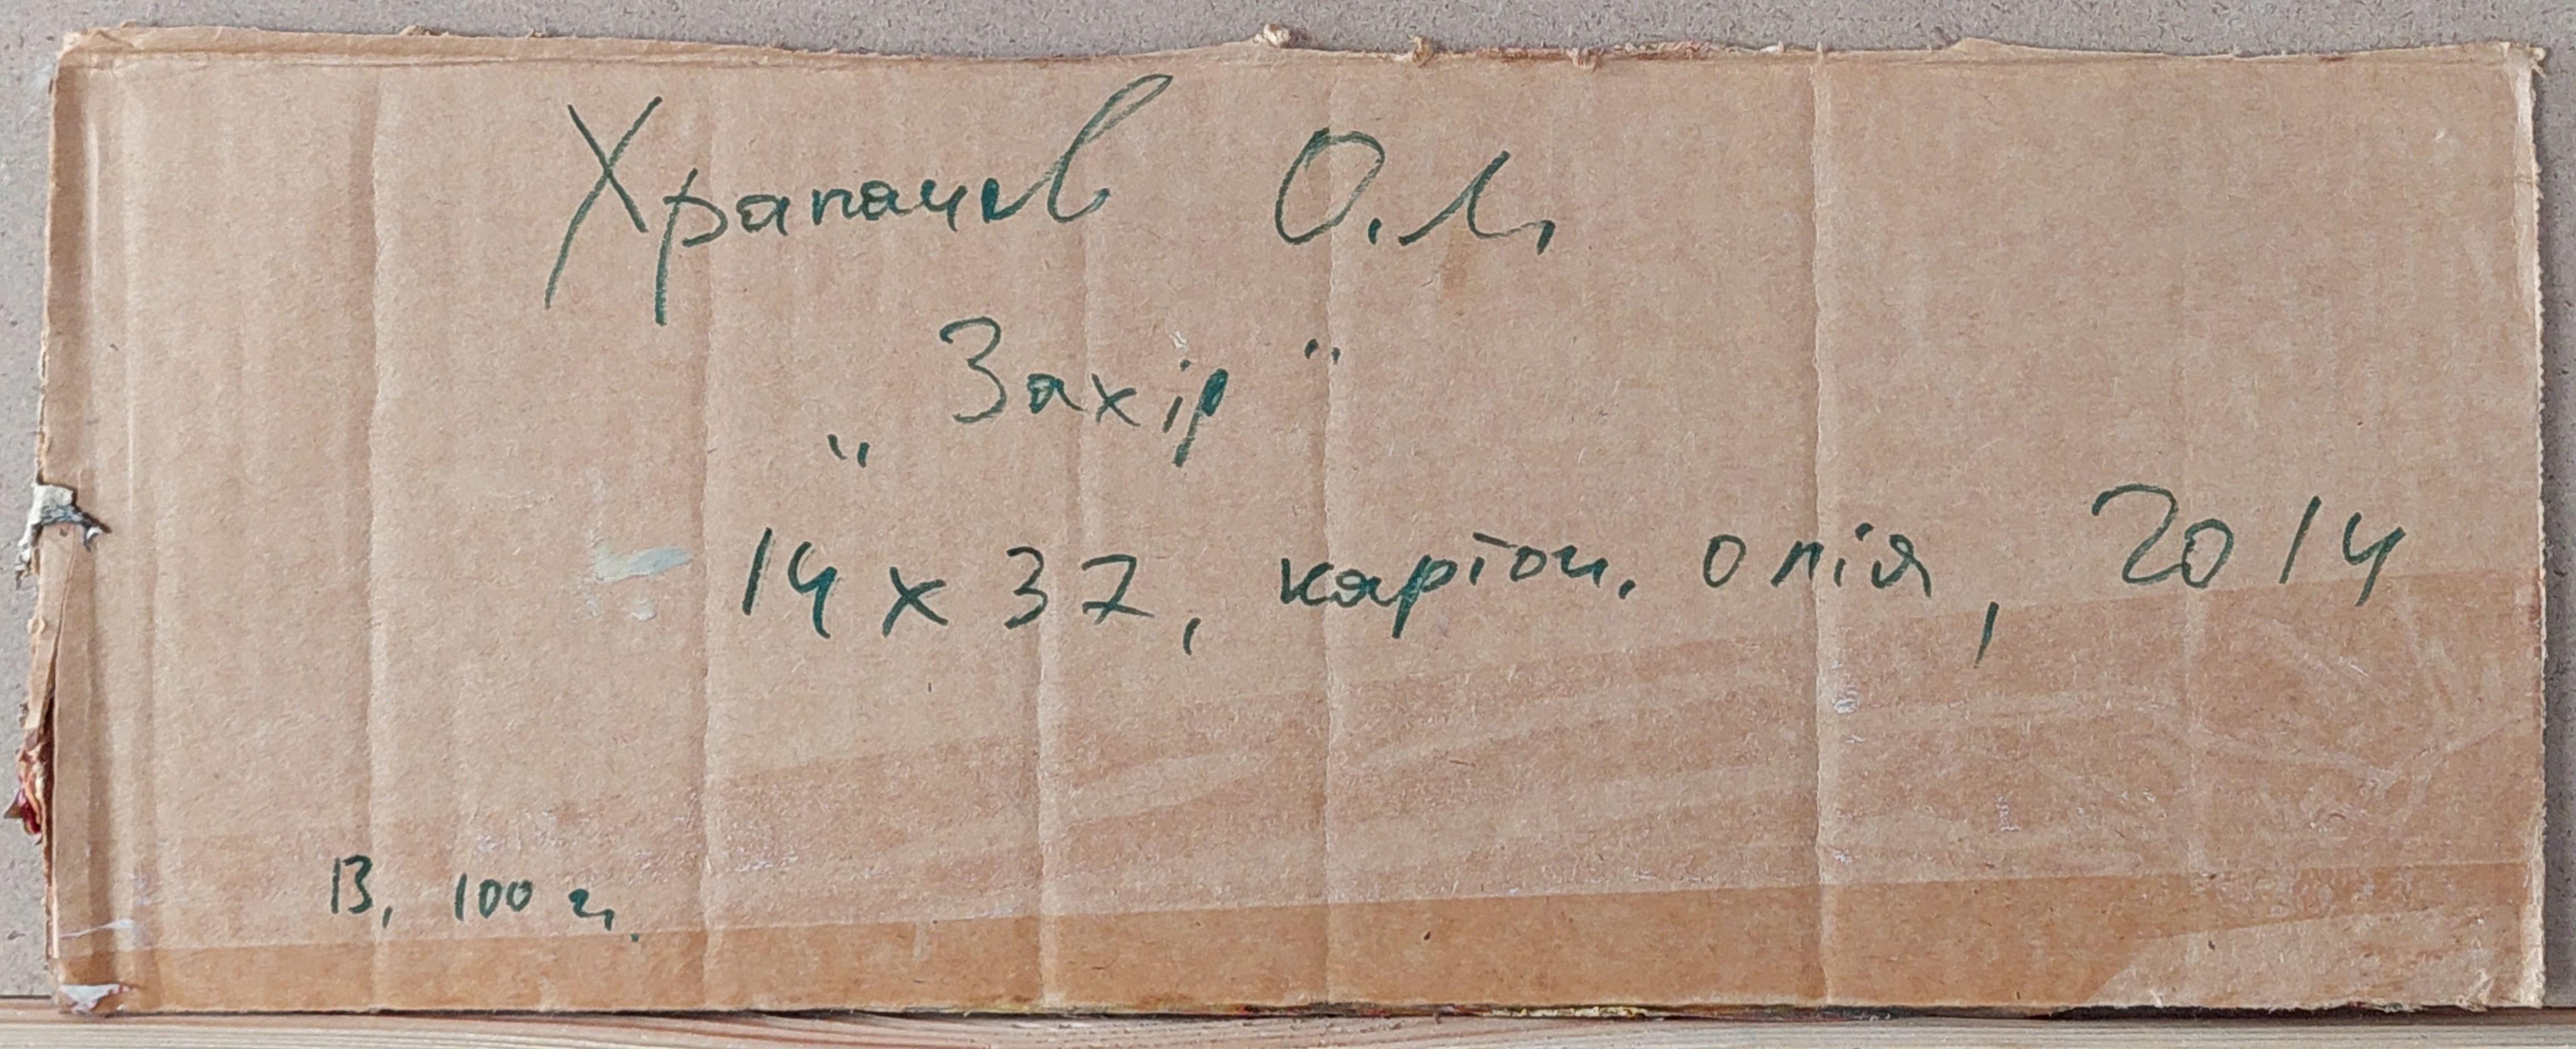 Храпачов О.М.
„Захір"
14 х 37, картон. олія, 2014
В. 100 г.